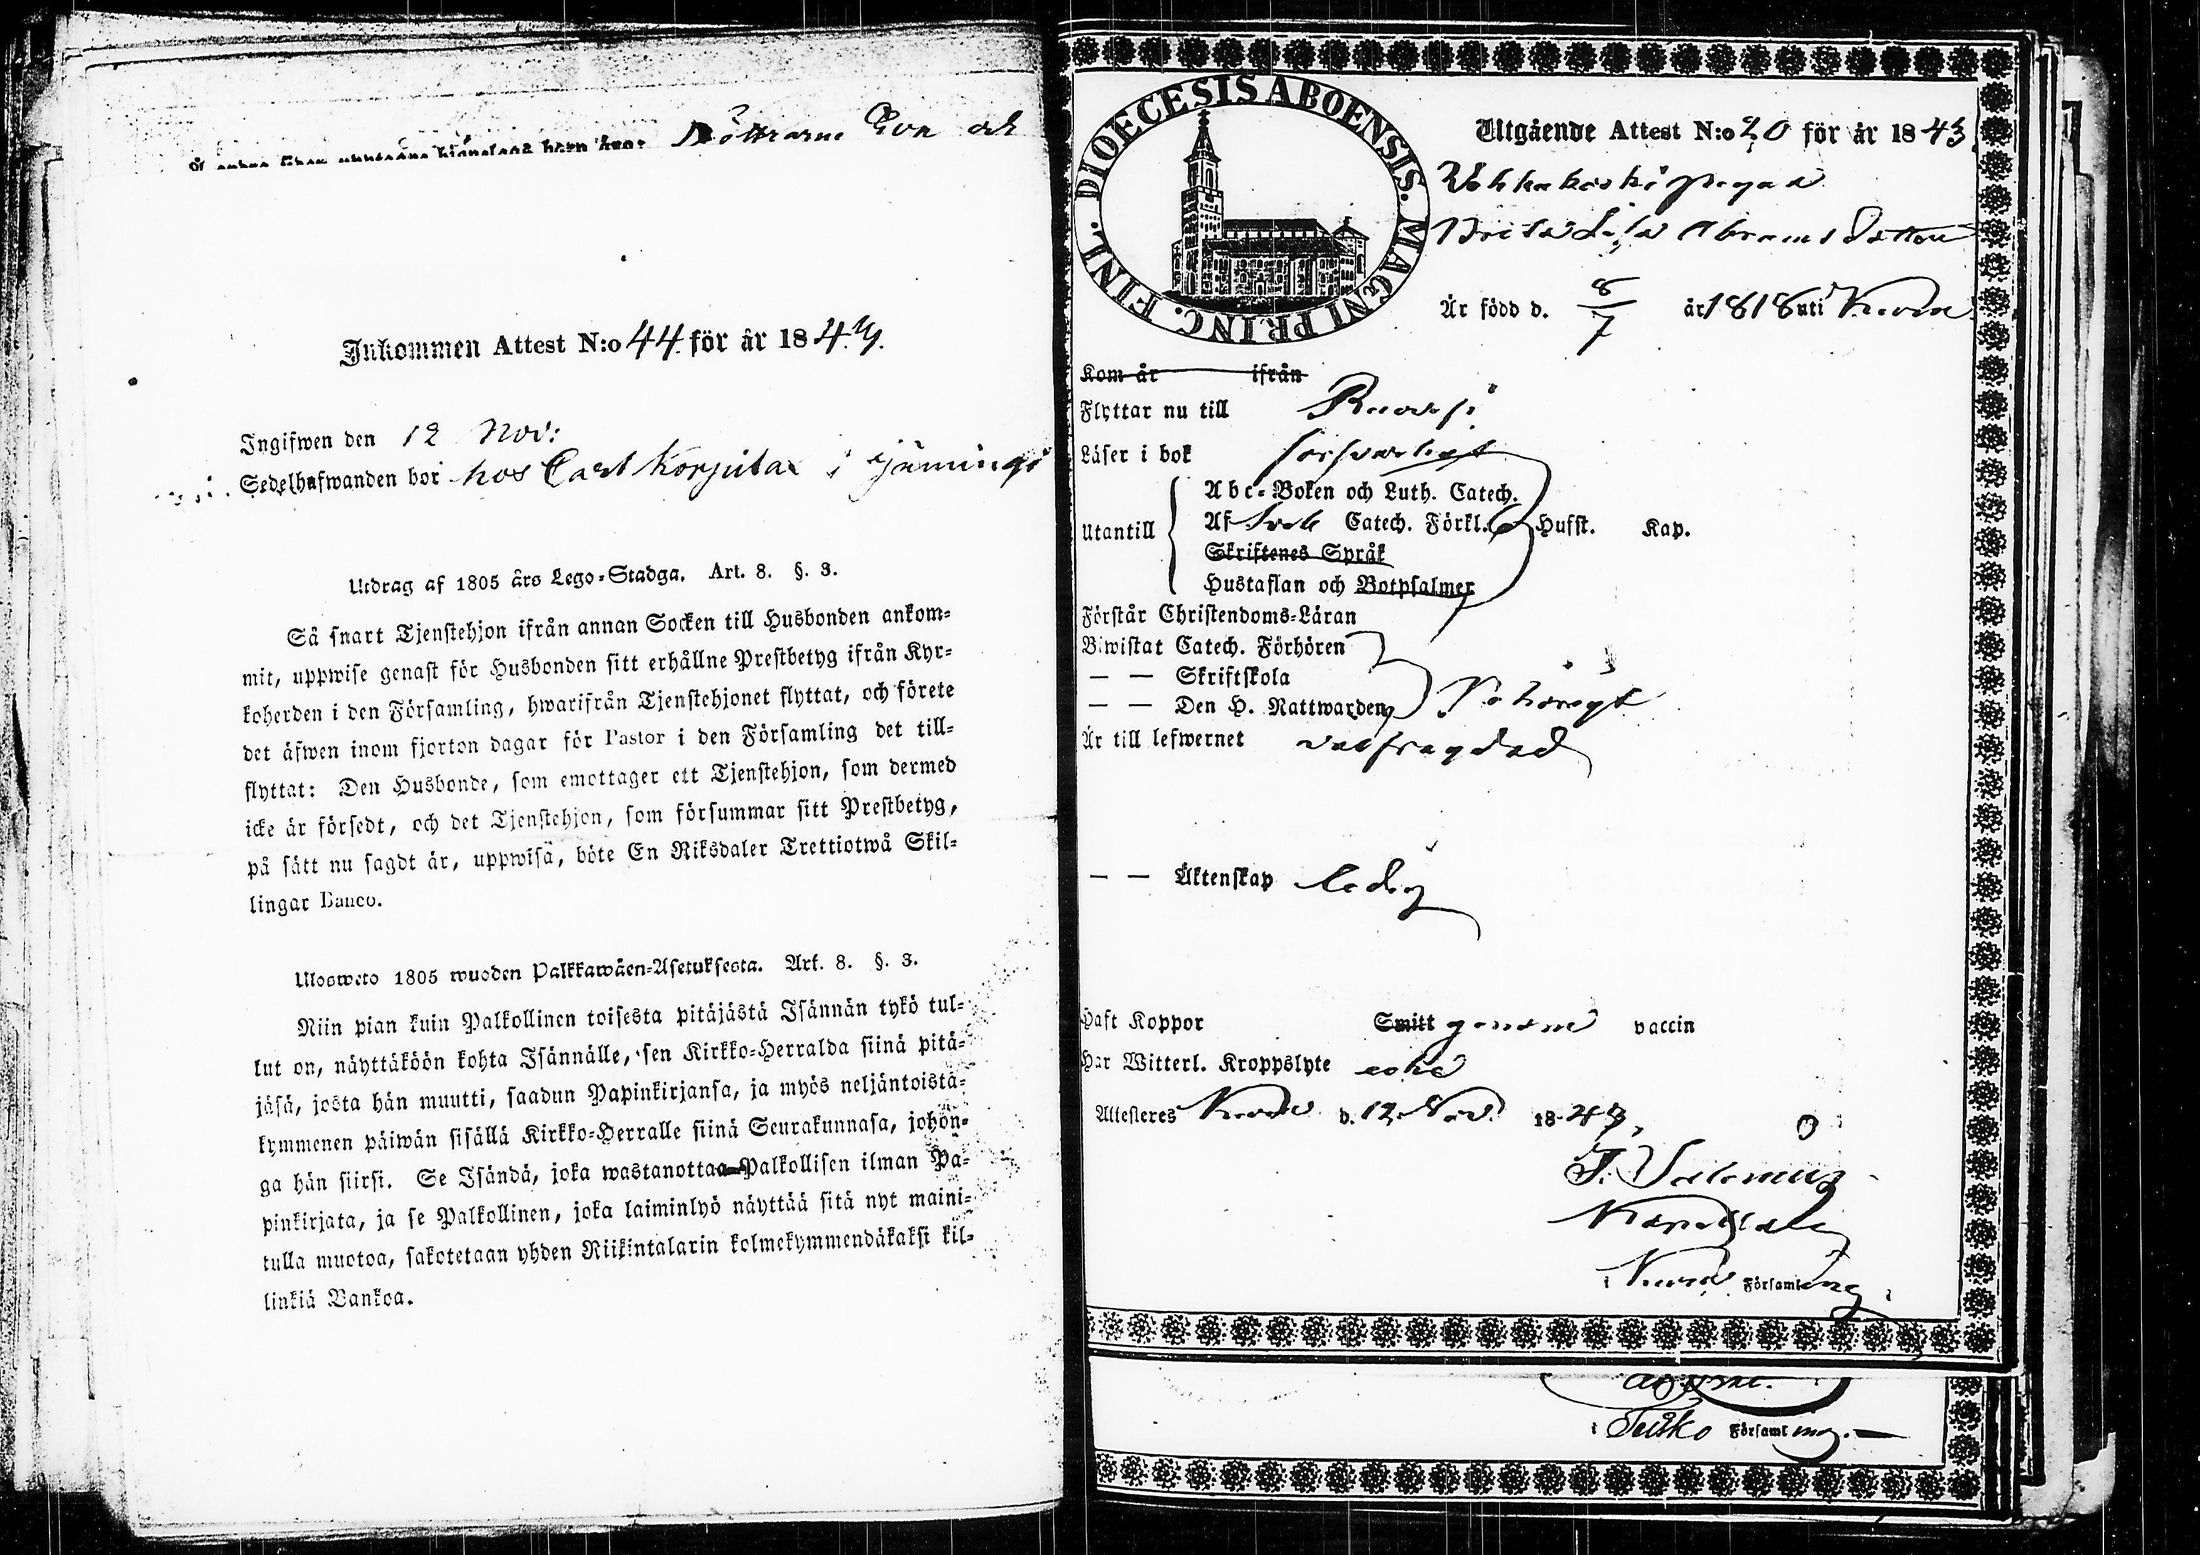 Döttrarne Eva och
Inkommen Attest N:o 44 för år 1843.
Ingifwen den 12 Nov:
Sedelhafwanden bor hos Carl Korpita i
Utdrag af 1805 års Lego-Stadga. Art. 8. §. 3.
Så snart Tjenstehjon ifrån annan Socken till Husbonden ankom-
mit, uppwise genast för Husbonden sitt erhållne Prestbetyg ifrån Kyr-
koherden i den Församling, hwarifrån Tjenstehjonet flyttat, och förete
det äfwen inom fjorton dagar för Pastor i den Församling det till-
flyttat: Den Husbonde, som emottager ett Tjenstehjon, som dermed
icke är försedt, och det Tjenstehjon, som försummar sitt Prestbetyg,
på sätt nu sagdt är, uppwisa, böte En Riksdaler Trettiotwå Skil-
lingar Banco.
Ulosweto 1805 wuoden Palkkawäen-Asetuksesta. Art. 8. §. 3.
Niin pian kuin Palkollinen toisesta pitäjästä Isännän tykö tul-
lut on, näyttäköön kohta Isännälle, sen Kirkko-Herralda siinä pitä-
jäsä, josta hän muutti, saadun Papinkirjansa, ja myös neljäntoistä-
kymmenen päiwän sisällä Kirkko-Herralle siinä Seurakunnasa, johon-
ga hän siirsi. Se Isändä, joka wastanottaa Palkollisen ilman Pa-
pinkirjata, ja se Palkollinen, joka laiminlyö näyttää sitä nyt maini-
tulla muotoa, sakotetaan yhden Riikintalarin kolmekymmendäkaksi kil-
linkiä Bankoa.
DIOECESIS ABOENSIS. MAGNI PRINC. FINL.
Utgående Attest N:o 20 för år 1843
pigan
Brita Lisa Abramsdotter
Är född d. 8/7 år 1818 uti
Kom år ifrån
Flyttar nu till
Läser i bok försvarligt
Utantill
Abc-Boken och Luth. Catech.
Af Sveb Catech. Förkl. Hufst. Kap.
Skriftenes Språk
Hustaflan och Botpsalmer
Förstår Christendoms-Läran
Biwistat Catech. Förhören
— — Skriftskola
— — Den H. Nattwarden behörigt
Är till lefwernet välfrägdad
— — Äktenskap ledig
Haft Koppor Smitt genom vaccin
Har Witterl. Kroppslyte icke
Attesteres d. 12 Nov. 1843,
Kapellan
i Församling
i Tusko Församling.